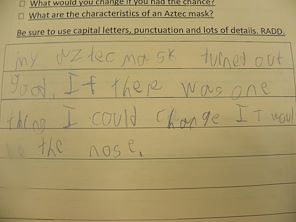 □ What would you change if you had the chance?
□ What are the characteristics of an Aztec mask?
Be sure to use capital letters, punctuation and lots of details. RADD.
my aztec mask turned out
good. If there was one
thing I could change I woul
be the nose.